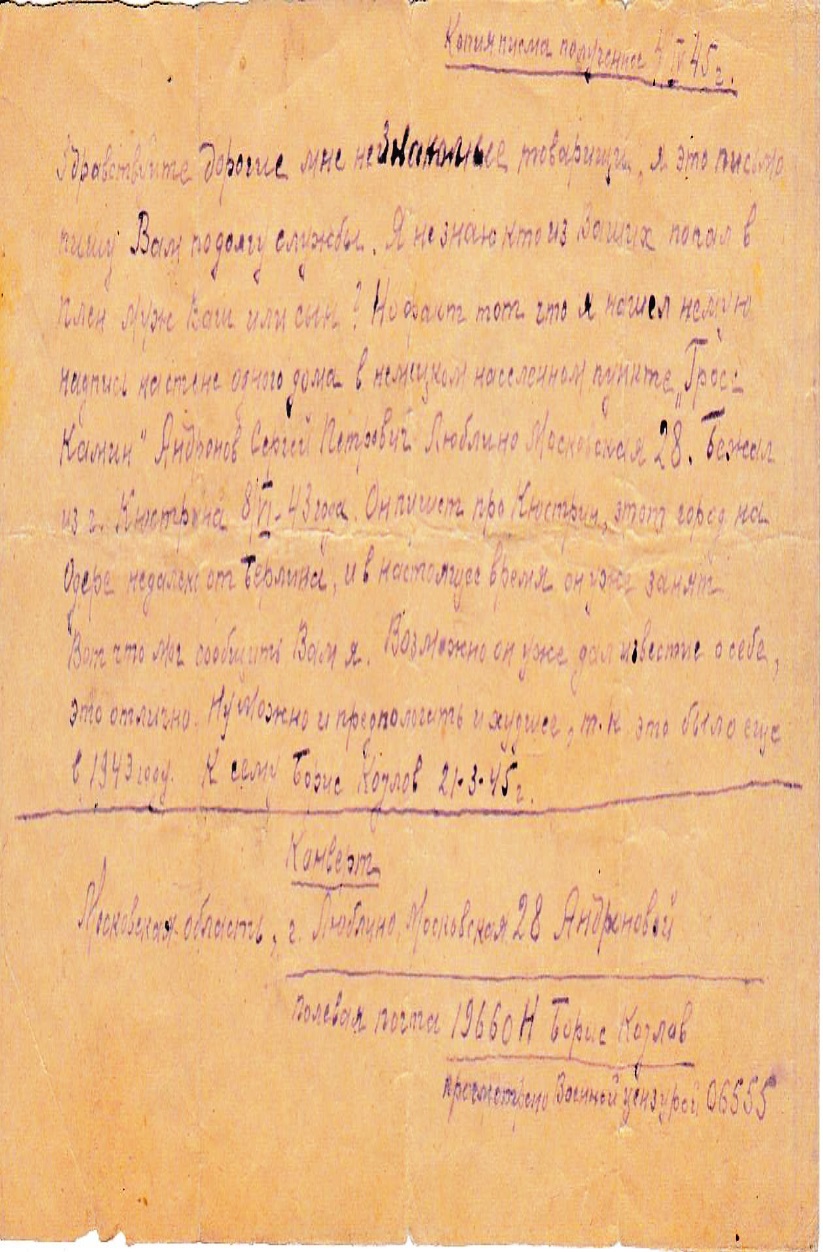 Копия письма получение 4/IV 45 г.
Здравствуйте дорогие мне незнакомые товарищи, я это письмо
пишу Вам по долгу службы. Я не знаю кто из Ваших попал в
плен муж Ваш или сын? Но факт тот что я нашел немую
надпись на стене одного дома в немецком населенном пункте „Грос-
Камин“ Андронов Сергей Петрович Люблино Московская 28. Бежал
из г. Кюстрина 8/VI-43 года. Он пишет про Кюстрин, этот город на
Одере недалеко от Берлина, и в настоящее время он уже занят.
Вот что мог сообщить Вам я. Возможно он уже дал известие о себе,
это отлично. Ну можно и предпологать и худшее, т.к. это было еще
в 1943 году. К сему Борис Козлов 21-3-45 г.
Конверт
Московская область, г. Люблино, Московская 28 Андроновой
полевая почта 19660 Н Борис Козлов
просмотрено Военной цензурой 06555